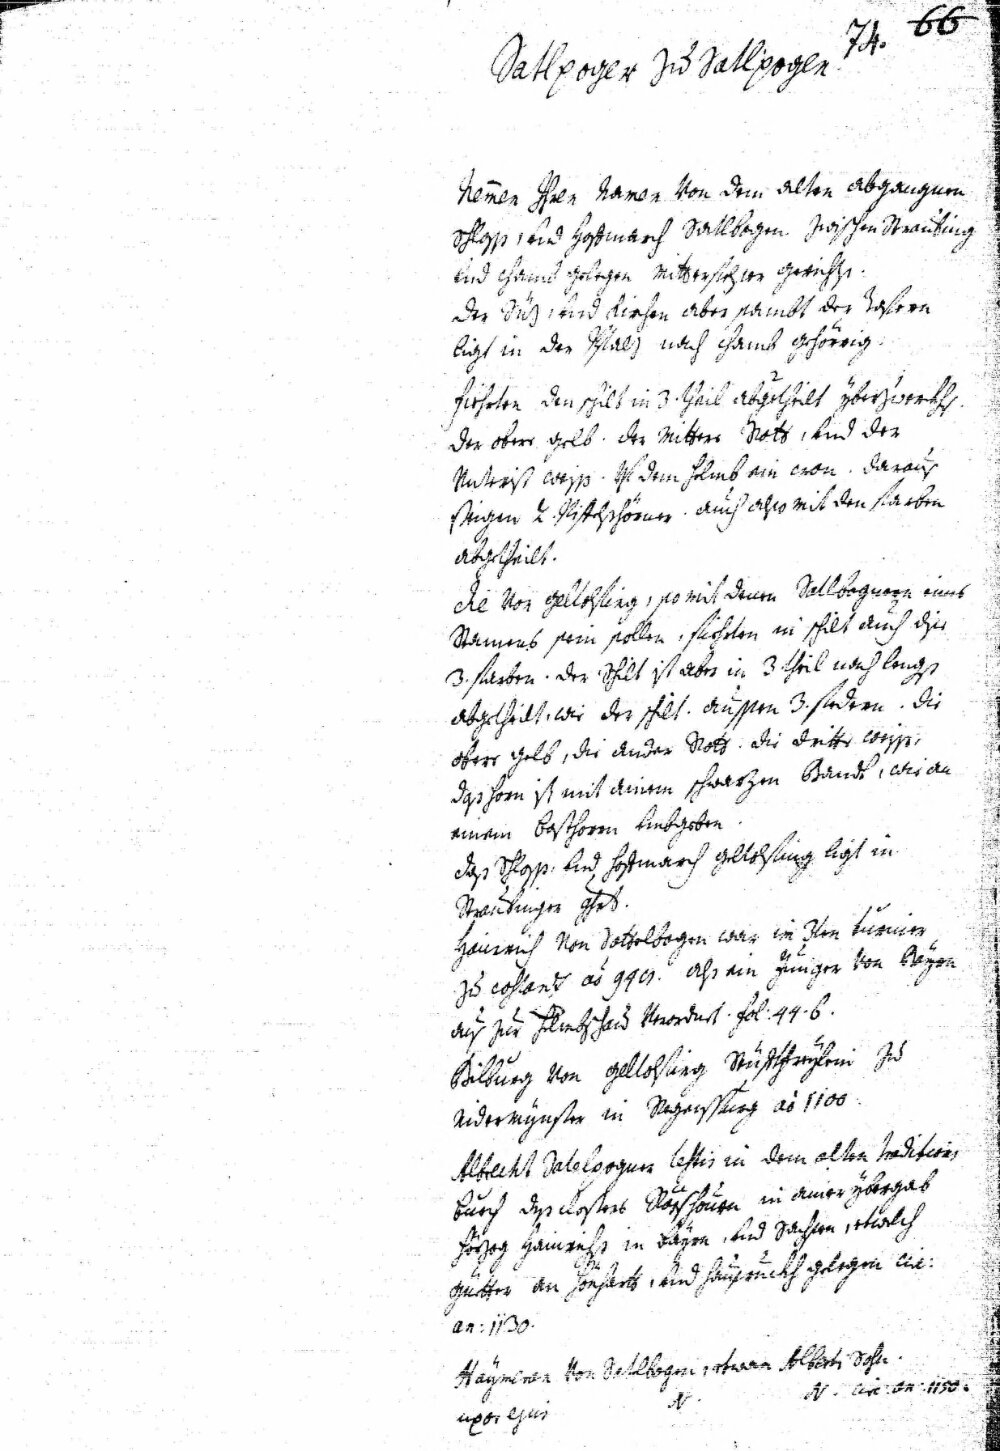 74. 66
Satlpoger zu Satlpogen
Nemen Ihren Namen von dem alten abgangnen
Schloss, und Hofmarch Satlbogen zwischen Straubing
und Chamb gelegen Mitterfelser gerichts.
der Siz, und Kirchen aber sambt der Tafern
ligt in der Pfalz nach Chamb gehörrig.
fierten den schilt in 3. theil abgetheilt yberzwerchs.
der obere gelb. der mittere Roth, und der
Unterist weiss. Uf dem helmb ein Cron. daraus
steigen 2. Püfelshörner. auch also mit den farben
abgetheilt.
die von geltolfing, so mit denen Satlbognern eines
Stamens sein sollen, fierten in schilt auch dise
3. farben. der Schilt ist aber in 3 theil nach lengs
abgetheilt, wie der schilt. aussen 3. federn. die
obere gelb, die ander Roth. die dritte weiss,
das horn ist mit ainem schwarzen Bandt, wie an
einem Posthorn umbgeben.
das Schloss, und hofmarch geltolfing ligt in
Straubinger ghrt.
Heinrich von Sattelbogen war im 3ten turnier
zu Costanz ao 948. als ein Junger von Bayrn
aus zur helmbschau verordnet. fol. 44. b.
Bilburg von geltolfing Stüfftfreylein zu
Nidermünster in Regenspurg ao 1100.
Albrecht Satlpogner testis in dem alten traditions
buech des closters in ainer ybergab
Herzog Hainrichs in Bayrn, und Sachsen, etwelch
guetter an gelegen circ:
an: 1130.
Haymeran von Satlbogen, etwan Alberti Sohn.
uxor eius N. N. circ: an: 1150.